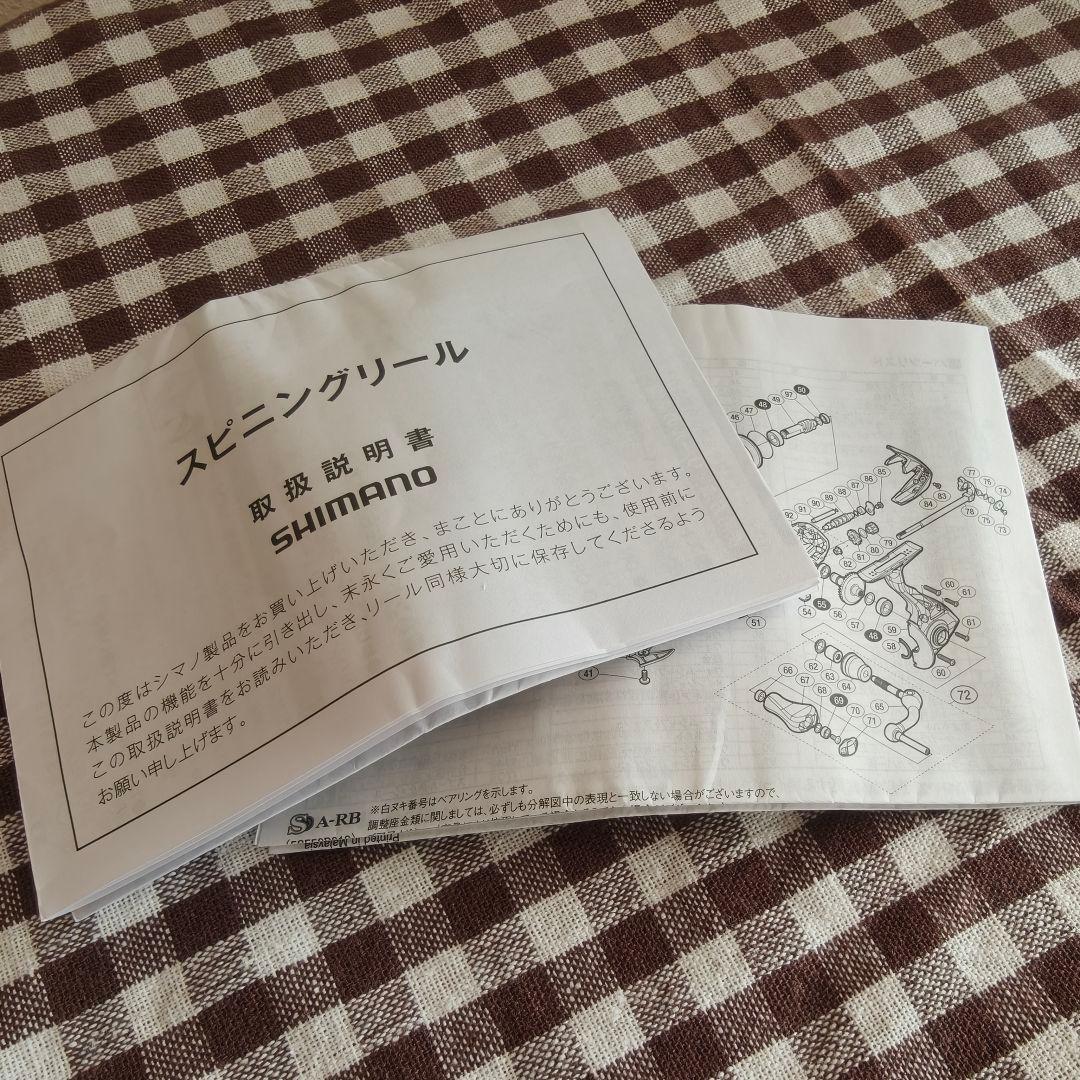 スピニングリール
取扱説明書
SHIMANO
この度はシマノ製品をお買い上げいただき、まことにありがとうございます。
本製品の機能を十分に引き出し、末永くご愛用いただくためにも、使用前に
この取扱説明書をお読みいただき、リール同様大切に保存してくださるよう
お願い申し上げます。
46 47 48 49 97 50
92 91 90 89 88 87 86 85
84 83
77 75 74
78 75 73
82 81 80 79
54 55 56 57 48 59 58
60 61
61
60
51
41
66 67 62 63 64
68 69 70 71 65
72
※白ヌキ番号はベアリングを示します。
S A-RB 調整座金類に関しましては、必ずしも分解図中の表現と一致しない場合がございますので、
Printed in Malaysia